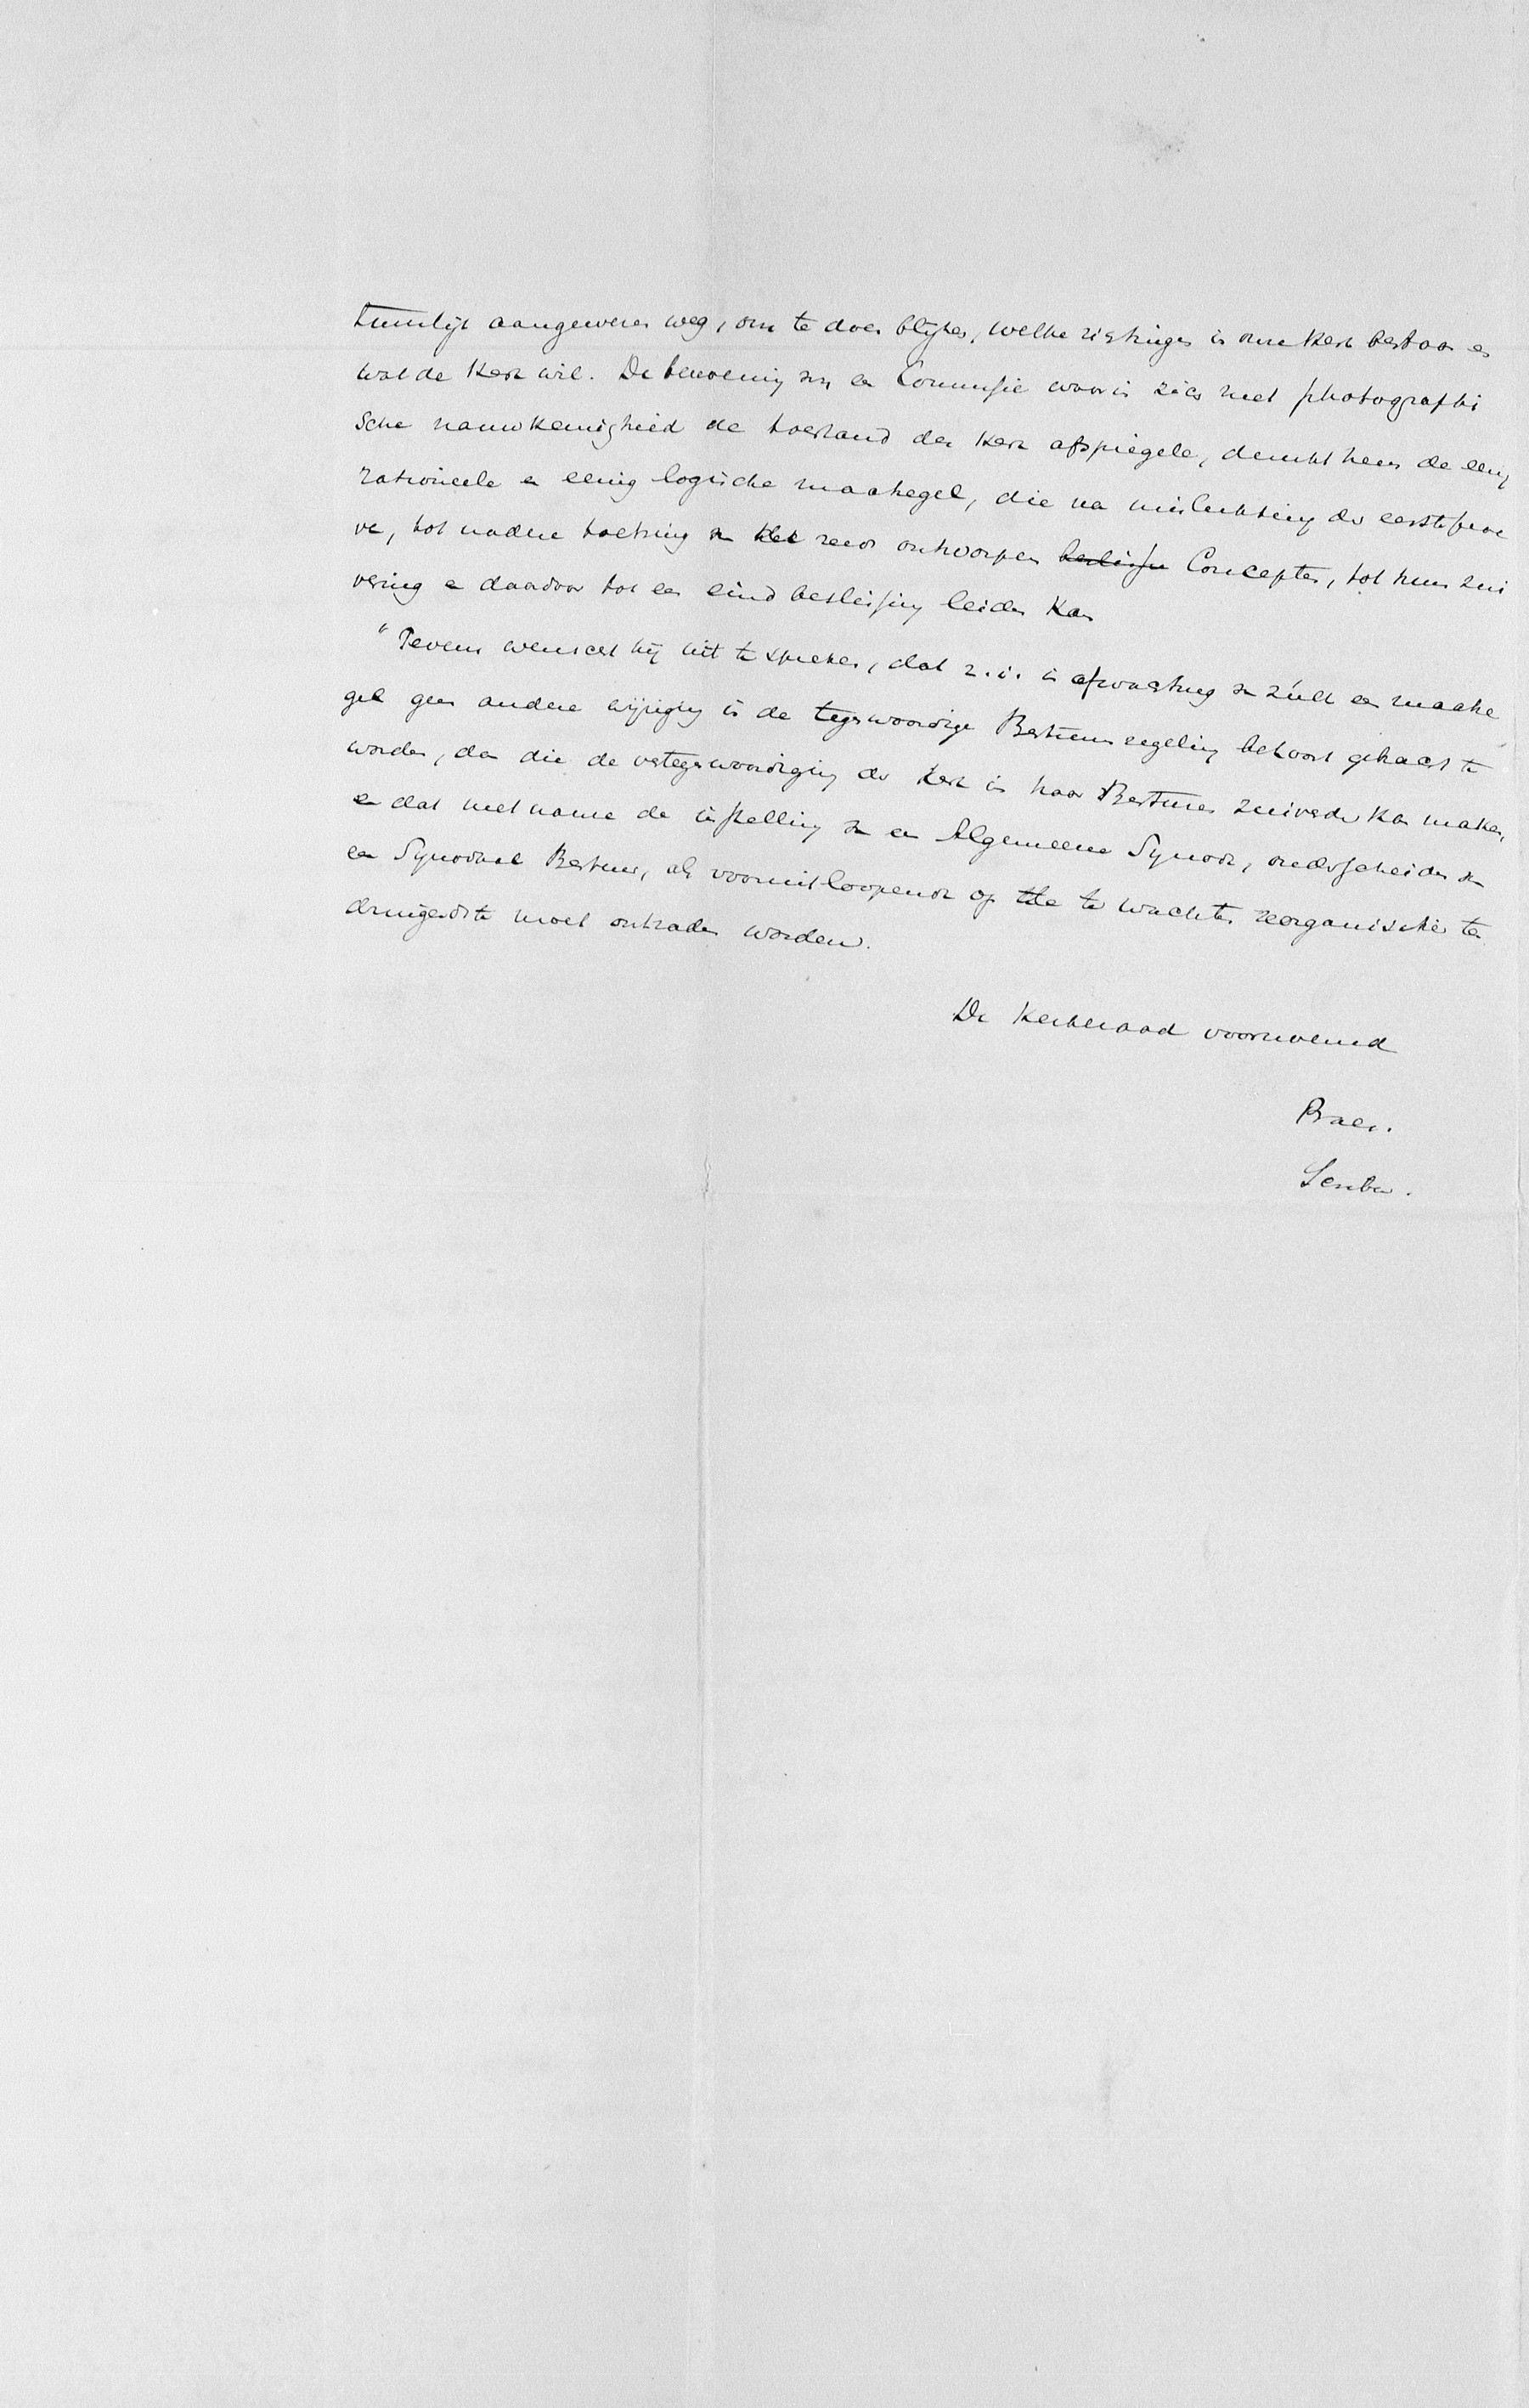 tuurlijk aangewezen weg, om te doen blijken, welke richtingen in onze Kerk bestaan en
wat de Kerk wil. De benoeming van een Commissie waarin zich met photographi
sche nauwkeurigheid de toestand der Kerk afspiegele, dunkt hem de eenig
rationeele en eenig logische maatregel, die na mislukking der eerste proe
ve, tot nadere toetsing van het reeds ontworpen beslissen Concepten, tot hun zui
vering en daardoor tot een eind beslissing leiden kan
"Tevens wenscht hij uit te spreken, dat z.i. in afwachting van zulk een maatre
gel geen andere wijziging in de tegenwoordige Bestuursregeling behoort gebracht te
worden, dan die de vertegenwoordiging der Kerk in haar Besturen zuiverder kan maken,
en dat met name de instelling van een Algemeene Synode, onderscheiden van
een Synodaal Bestuur, als vooruitloopende op de te wachten reorganisatie ten
dringendste moet ontraden worden.
De Kerkeraad voornoemd
Praes.
Scriba.